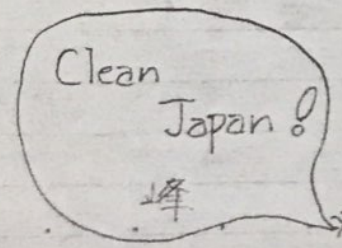 Clean
Japan!
峰